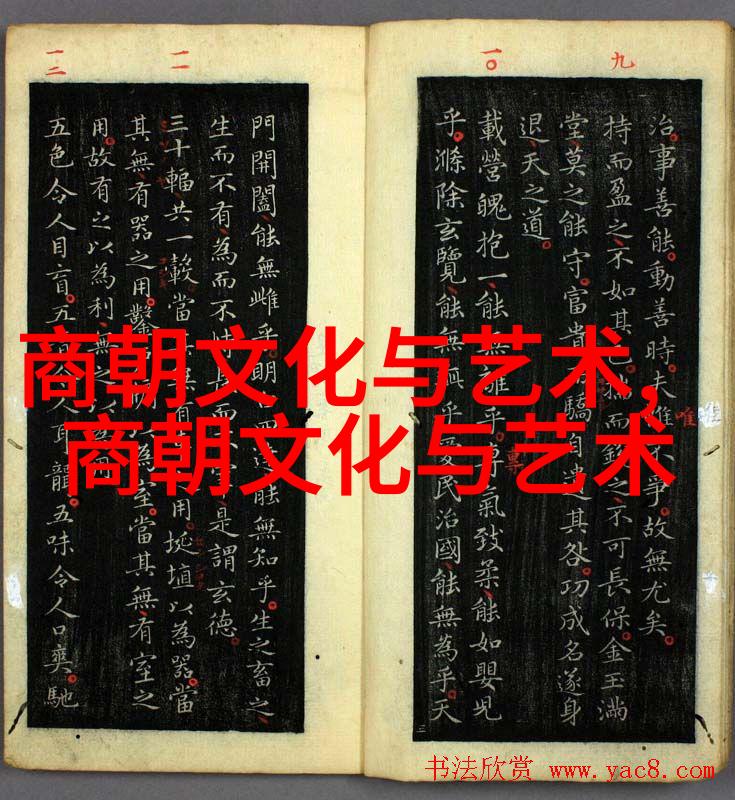 九
一〇
一一
一二
治事善能動善時夫唯不爭故無尤矣
持而盈之不如其已揣而銳之不可長保金玉滿
堂莫之能守富貴驕自遺其咎功成名遂身
退天之道
載營魄抱一能無離乎專氣致柔能如嬰兒
乎滌除玄覽能無疵乎愛民治國能無為乎天
門開闔能無雌乎明白四達能無知乎生之畜之
生而不有為而不恃長而不宰是謂玄德
三十輻共一轂當其無有用埏埴以為器當
其無有器之用鑿為室當其無有室之
用故有之以為利無之以為用
五色令人目盲五音令人耳聾五味令人口爽馳
唯
商朝文化与艺术,
商朝文化与艺术
书法欣赏 www.yac8.com